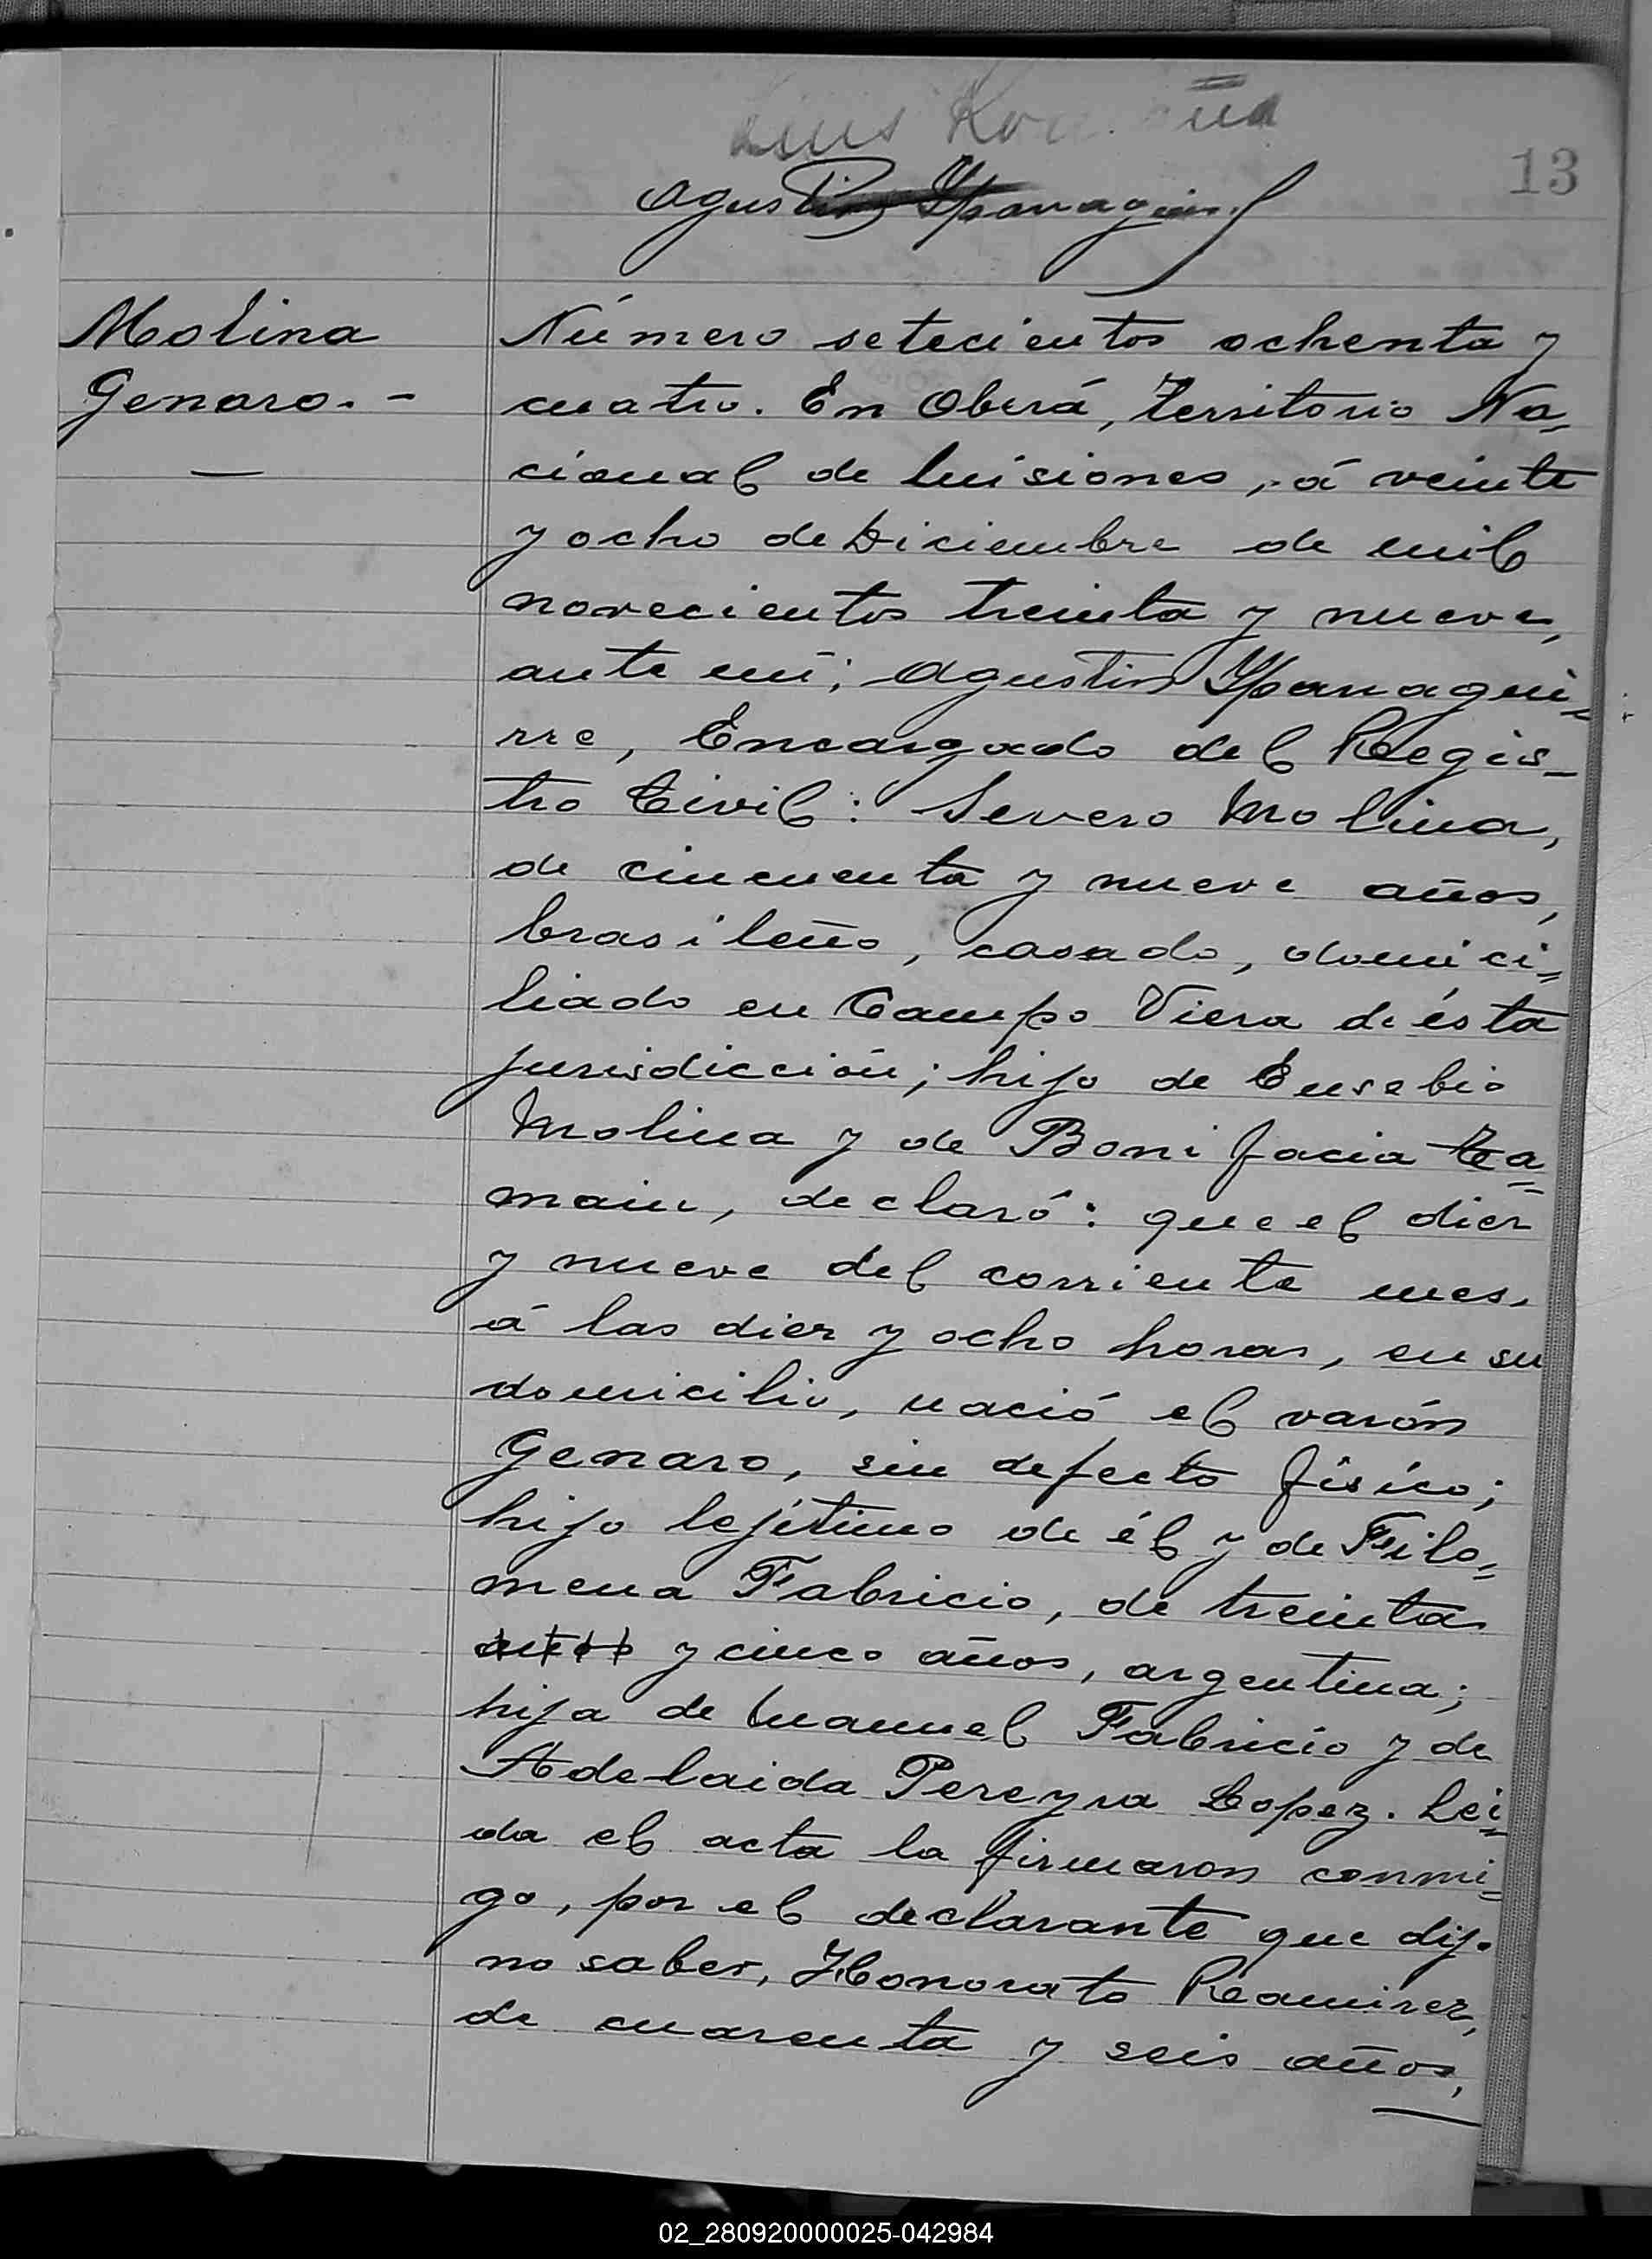 Luis
13
Agustin Yparraguirre
Molina
Genaro. -
Número setecientos ochenta y
cuatro. En Oberá, Territorio Na=
cional de Misiones, á veinte
y ocho de Diciembre de mil
novecientos treinta y nueve,
ante mi; Agustin Yparragui=
rre, Encargado del Regis-
tro Civil: Severo Molina,
de cincuenta y nueve años,
brasileño, casado, domici=
liado en Campo Viera de ésta
jurisdicción; hijo de Eusebio
Molina y de Bonifacia
declaró: que el diez
y nueve del corriente mes,
á las diez y ocho horas, en su
domicilio, nació el varón
Genaro, sin defecto físico;
hijo lejítimo de él y de Filo=
mena Fabricio, de treinta
y cinco años, argentina;
hija de Manuel Fabricio y de
Adelaida Pereyra Lopez. Lei=
da el acta la firmaron conmi=
go, por el declarante que dijo
no saber, Honorato Ramirez,
de cuarenta y seis años,
02_280920000025-042984